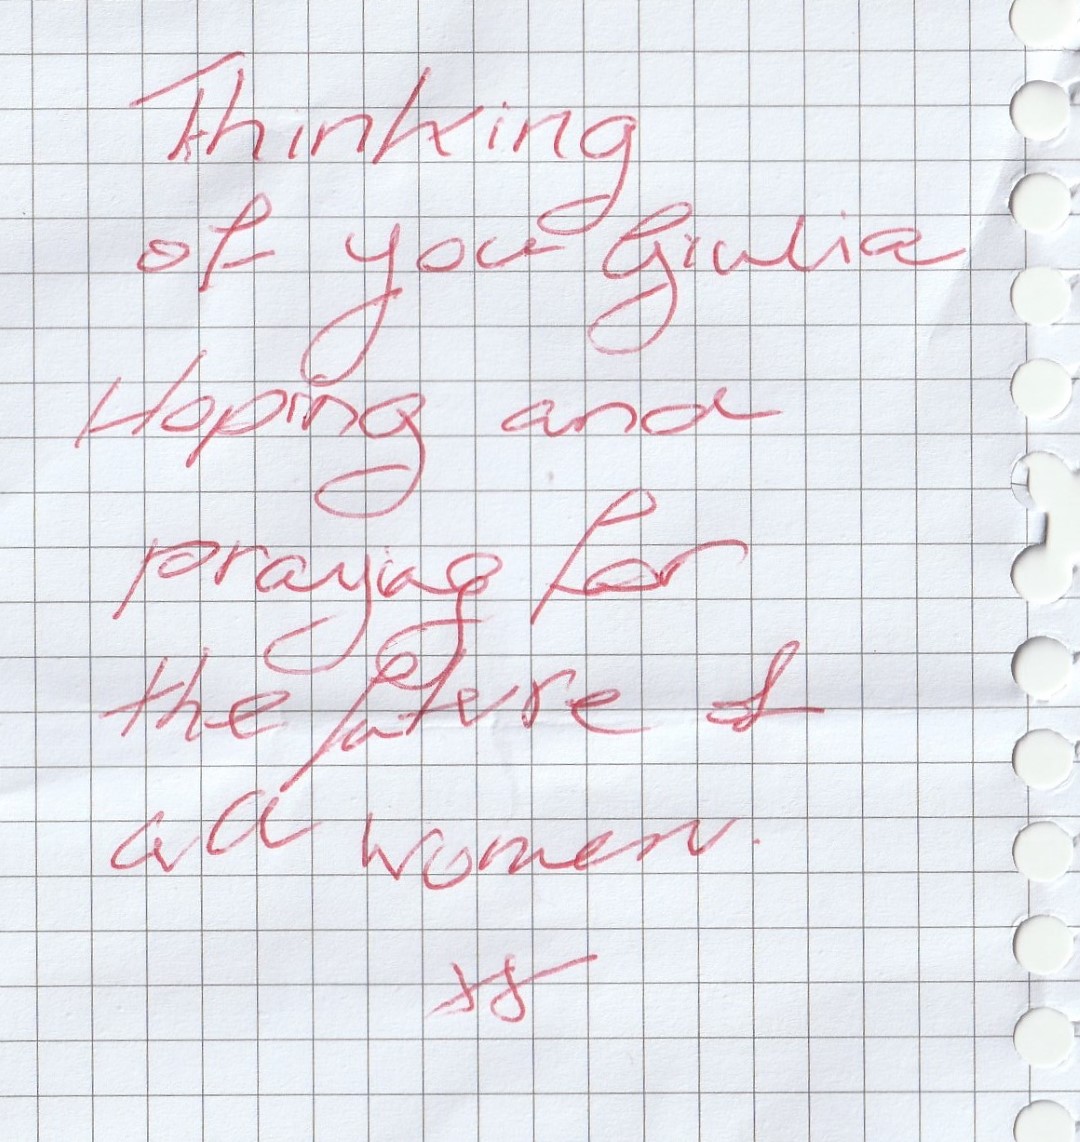 Thinking
of you Giulia
Hoping and
praying for
the future of
all women.
xx